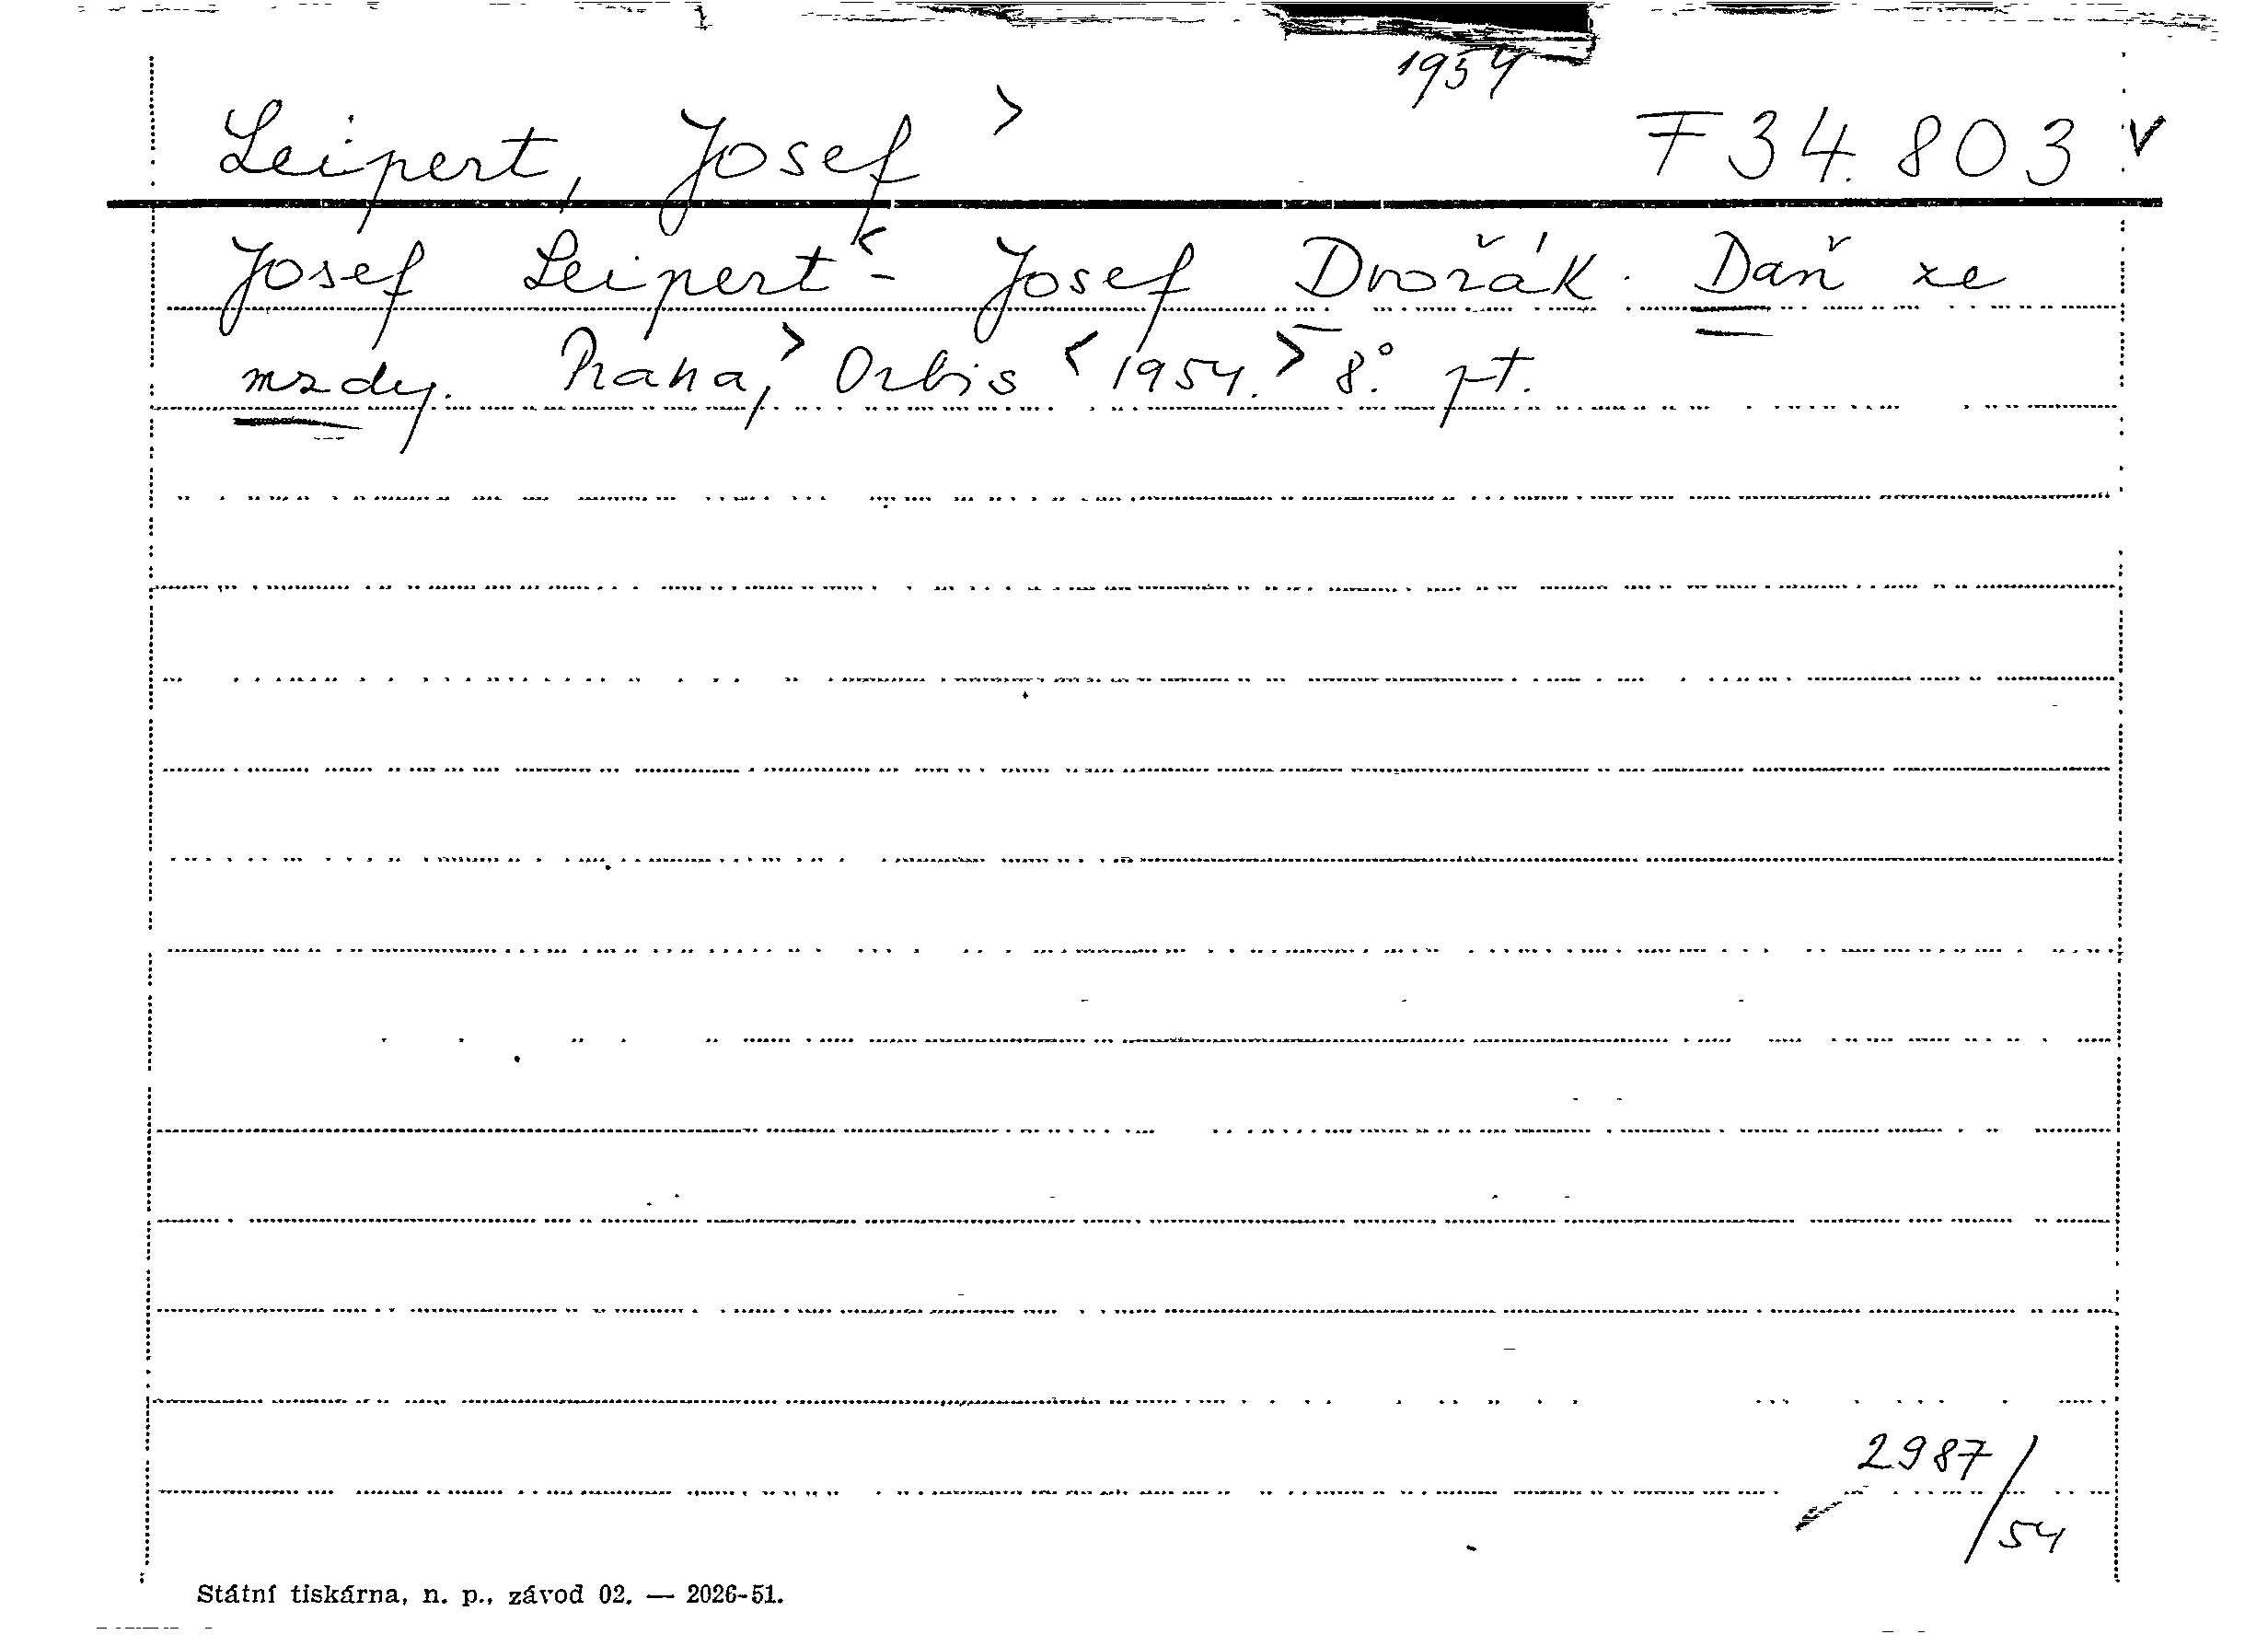 1954
Leipert, Josef > F 34.803 v
Josef Leipert < - Josef Dvořák. Daň ze
mzdy. Praha, > Orbis < 1954. > 8°. pt.
2987/54
Státní tiskárna, n. p., závod 02. — 2026-51.